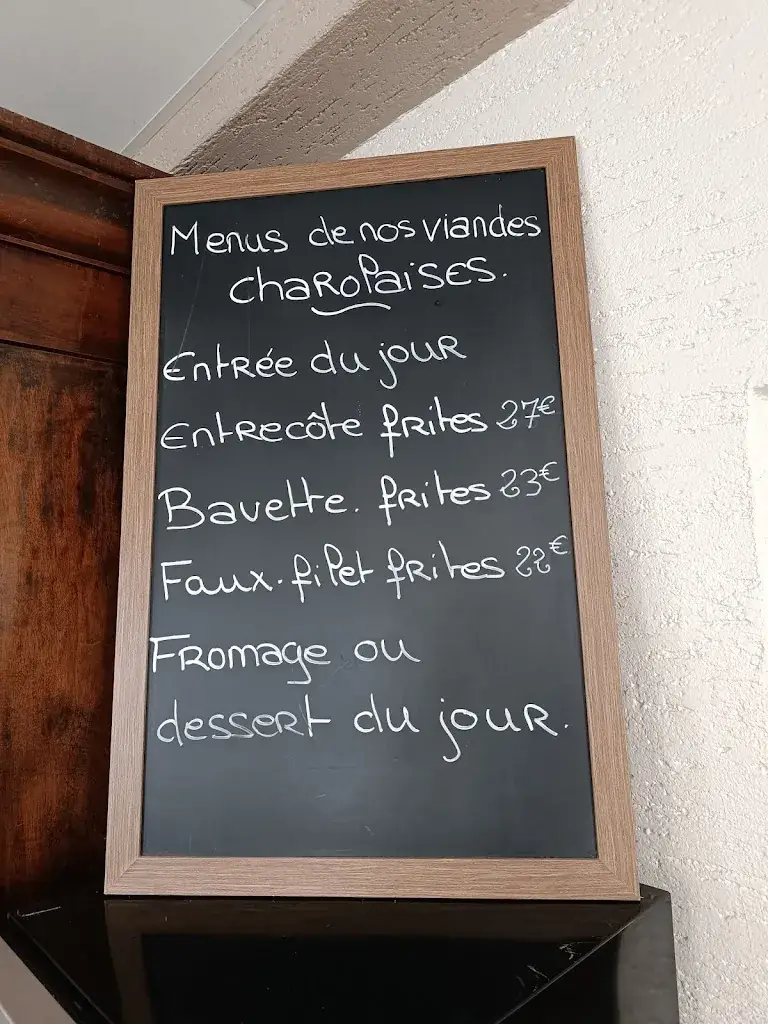 Menus de nos viandes
charolaises.
Entrée du jour
Entrecôte frites 27€
Bavette. frites 23€
Faux-filet frites 22€
Fromage ou
dessert du jour.